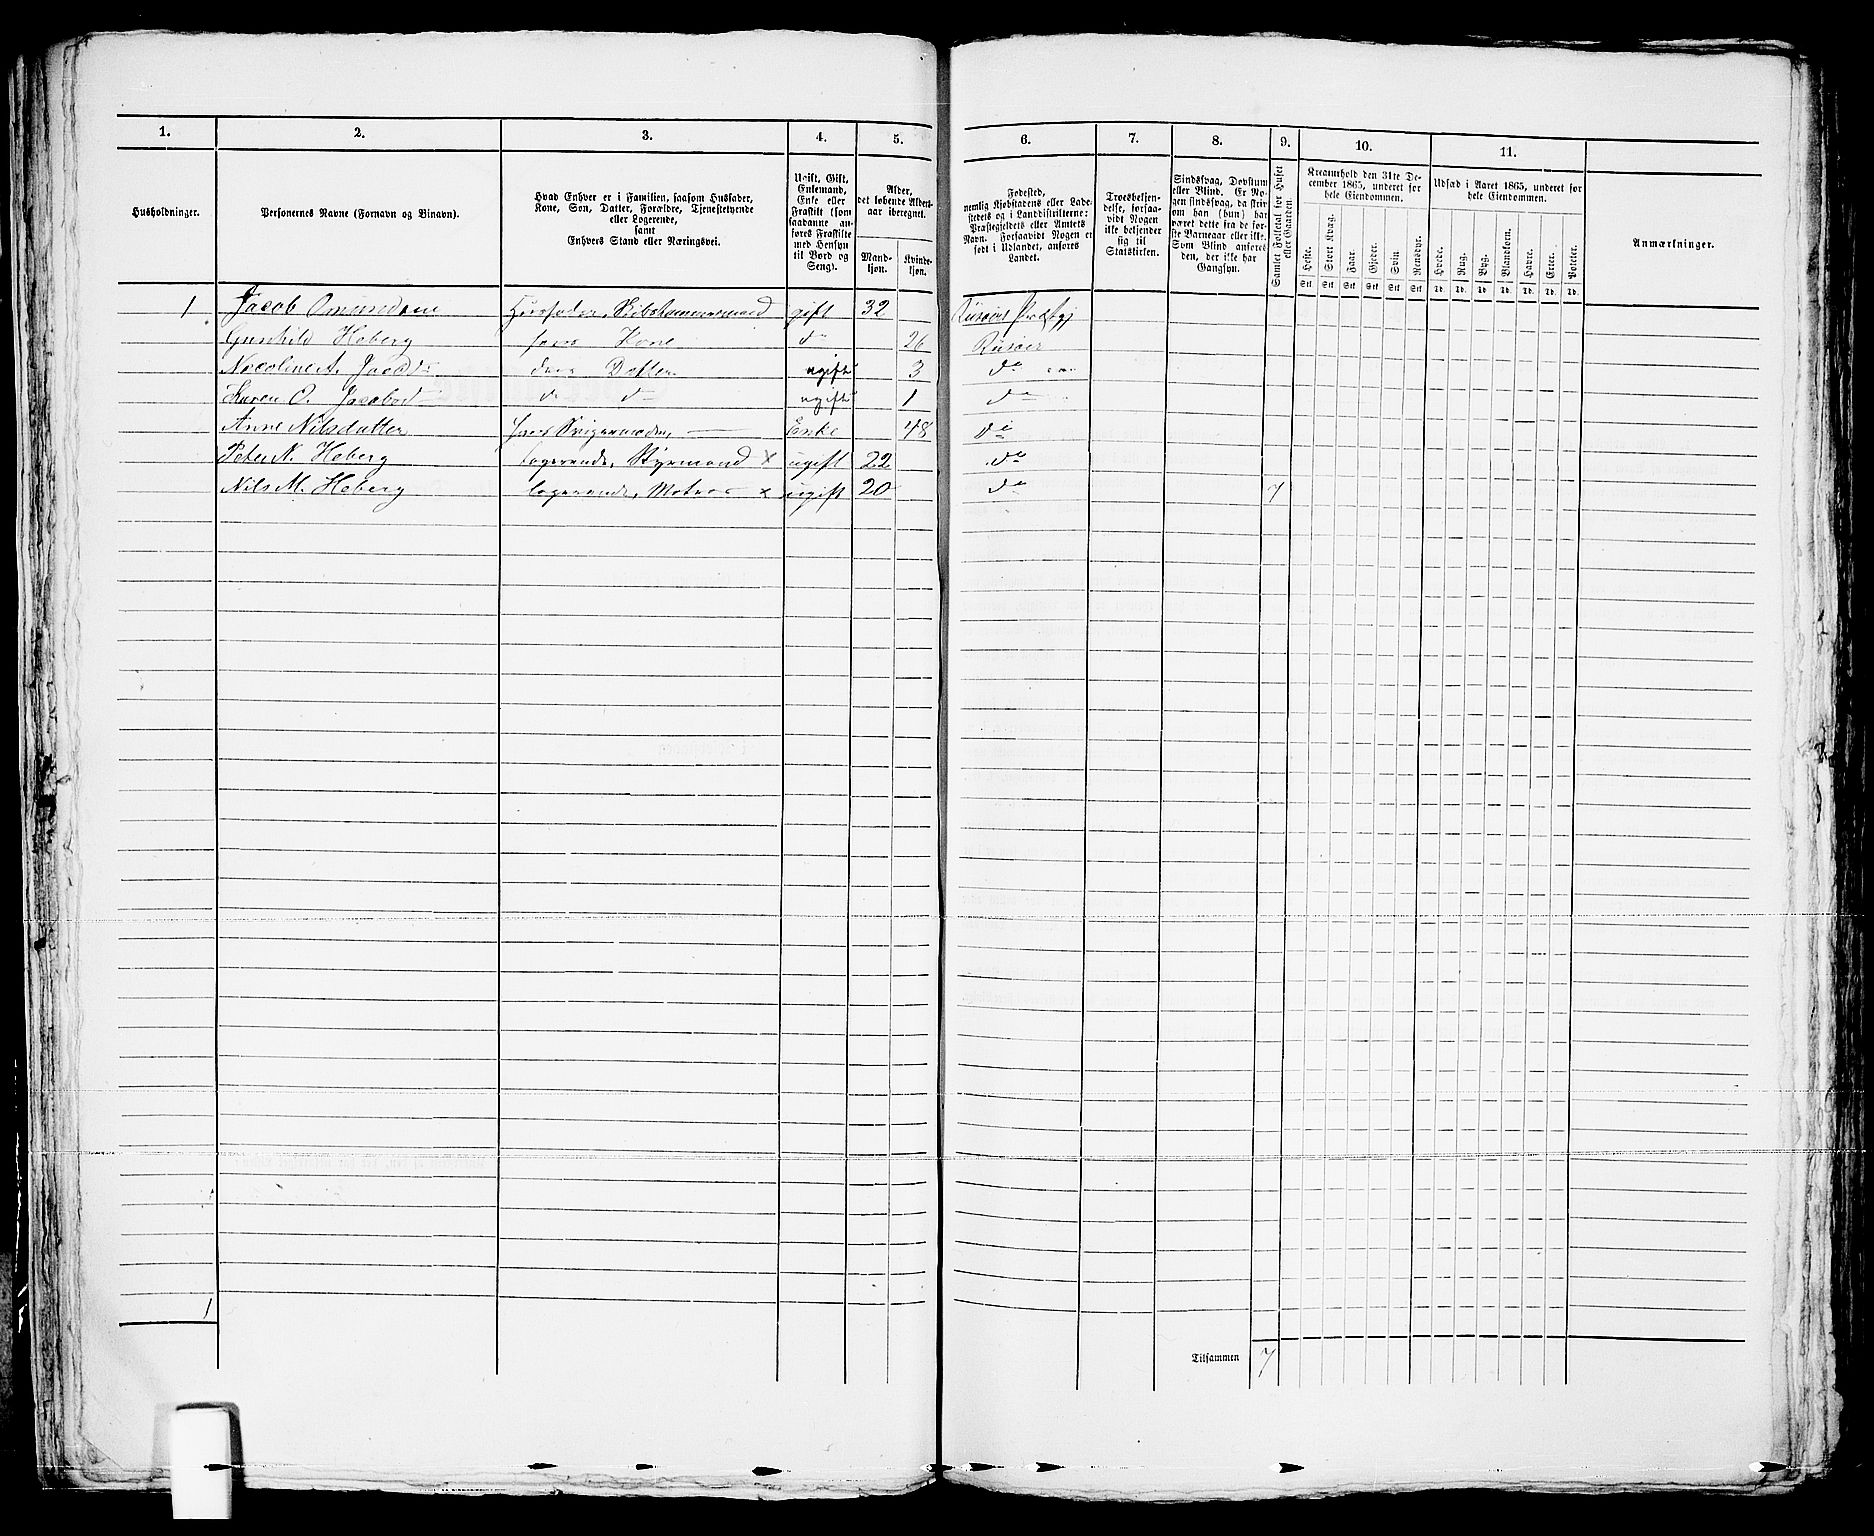 1. 2. 3. 4. 5. 6. 7. 8. 9. 10. 11.
Husholdninger.
Personernes Navne (Fornavn og Binavn).
Hvad Enhver er i Familien, saasom Husfader,
Kone, Søn, Datter, Forældre, Tjenestetyende
eller Logerende,
samt
Enhvers Stand eller Næringsvei.
Ugift, Gift,
Enkemand,
Enke eller
Fraskilt (som
saadanne an-
føres Fraskilte
med Hensyn
til Bord og
Seng).
Alder,
det løbende Alders-
aar iberegnet.
Mand-
kjøn.
Kvinde-
kjøn.
Fødested,
nemlig Kjøbstadens eller Lade-
stedets og i Landdistrikterne:
Præstegjeldets eller Amtets
Navn. Forsaavidt Nogen er
født i Udlandet, anføres
Landet.
Troesbekjen-
delse, forsaa-
vidt Nogen
ikke bekjender
sig til
Statskirken.
Sindssvag, Døvstum
eller Blind. Er No-
gen sindssvag, da skri-
ves om han (hun) har
været dette fra de før-
ste Barneaar eller ikke.
Som Blind anføres
den, der ikke har
Gangsyn.
Samlet Folketal for Huset
eller Gaarden.
Kreaturhold den 31te De-
cember 1865, underet for
hele Eiendommen.
Heste. Stort Kvæg. Faar. Gjeder. Svin. Rensdyr.
Stk Stk Stk Stk Stk Stk
Udsæd i Aaret 1865, underet for
hele Eiendommen.
Hvede. Rug. Byg. Blandkorn. Havre. Erter. Poteter.
Td. Td. Td. Td. Td. Td. Td.
Anmærkninger.
1 Jacob Omundsen Husfader, Skibstømmermand gift 32 Risøers Præstgj
Gunhild Heberg hans Kone do 26 Risøer
Nicoline A. Jacobs deres Datter ugift 3 do
Karen O. Jacobsd do do ugift 1 do
Anne Nilsdatter hans Svigermoder, Enke 48 do
Peter N. Heberg logerende, Styrmand x ugift 22 do
Nils M. Heberg logerende, Matros x ugift 20 do 7
1
Tilsammen 7